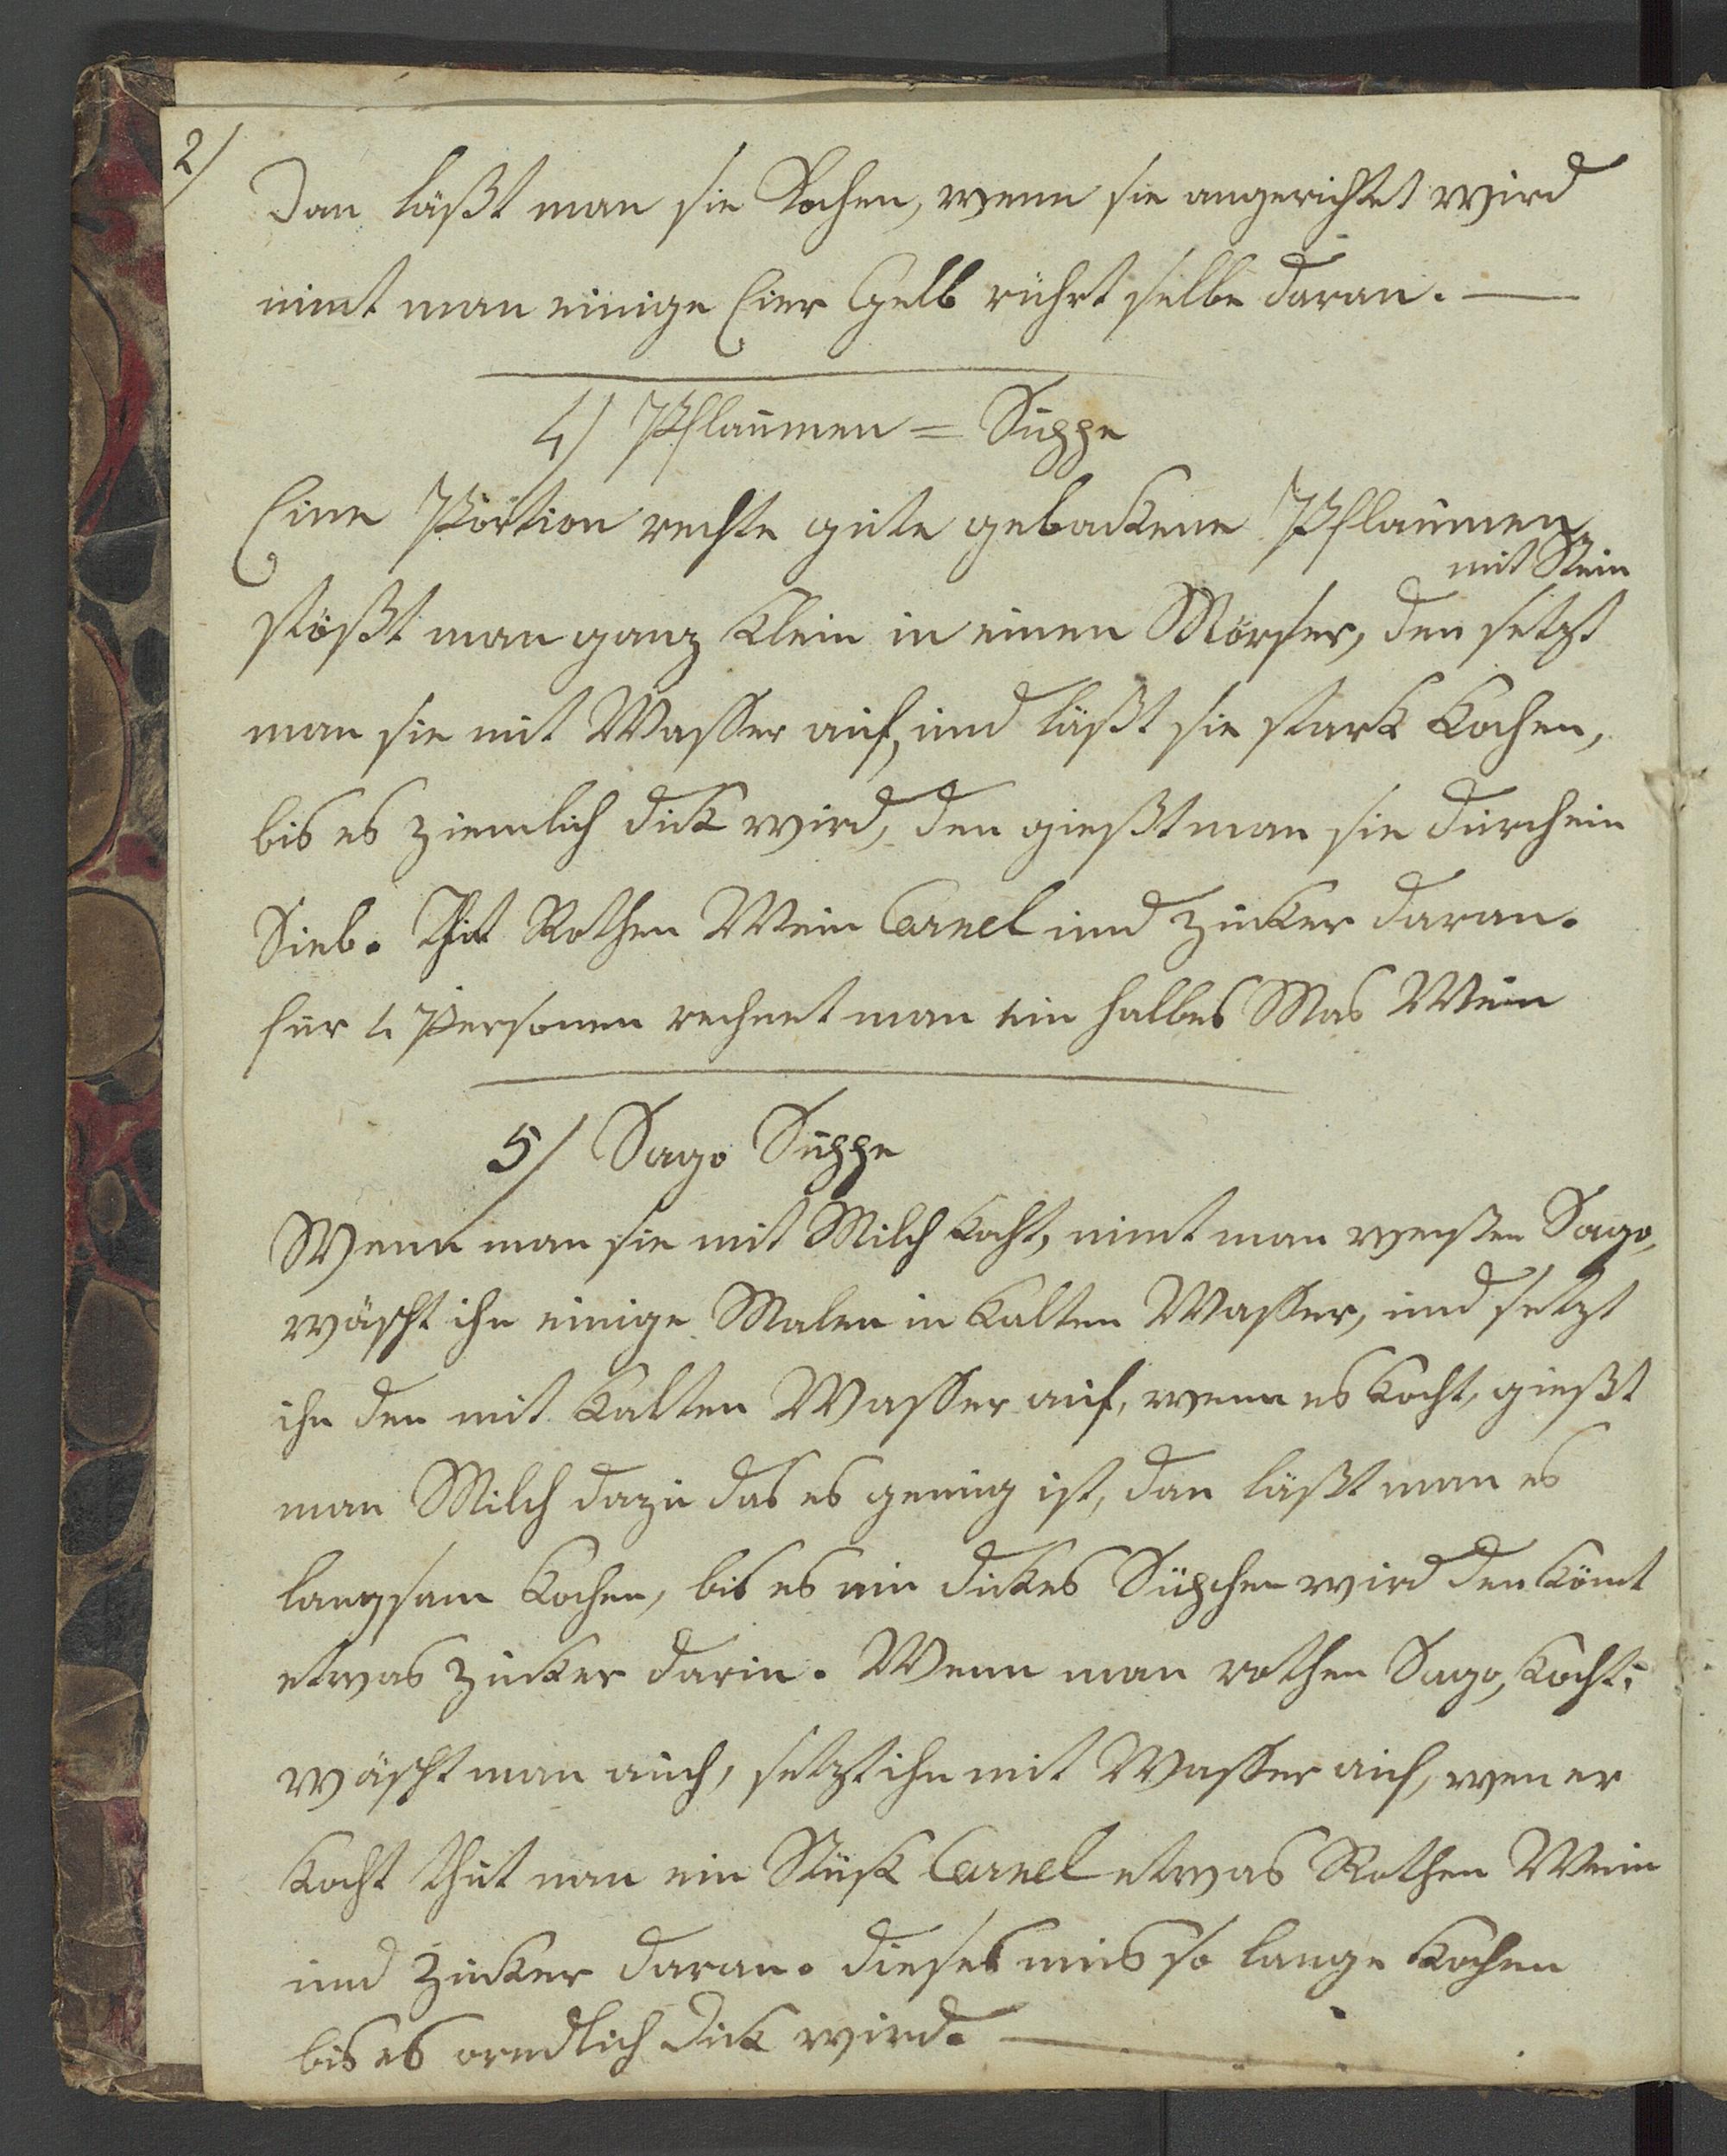 2)
Dan läßt man sie Kochen, wenn sie angerichtet wird
nimt man einige Eier Gelb rührt selbe daran. —
4) Pflaumen = Suppe
Eine Portion rechte gute gebackene Pflaumen
mit Stein
stößt man ganz klein in einen Mörser, den setzt
man sie mit Wasser auf, und läßt sie stark kochen,
bis es ziemlich dick wird, den gießt man sie durch ein
Sieb. Thut Rothen Wein Canel und Zucker daran.
für 4 Personen rechnet man ein halbes Mas Wein
5) Sago Suppe
Wenn man sie mit Milch kocht, nimt man weißen Sago,
wäscht ihn einige Malen in kalten Wasser, und setzt
ihn den mit kalten Wasser auf, wenn es kocht, gießt
man Milch dazu das es genug ist, dan läßt man es
langsam kochen, bis es ein dickes Süpchen wird den kömt
etwas Zucker darin. Wenn man rothen Sago, kocht,
wäscht man auch, setzt ihn mit Wasser auf, wen er
kocht thut man ein Stük Canel etwas Rothen Wein
und Zucker daran. dieses mus so lange kochen
bis es orndlich dick wird. —